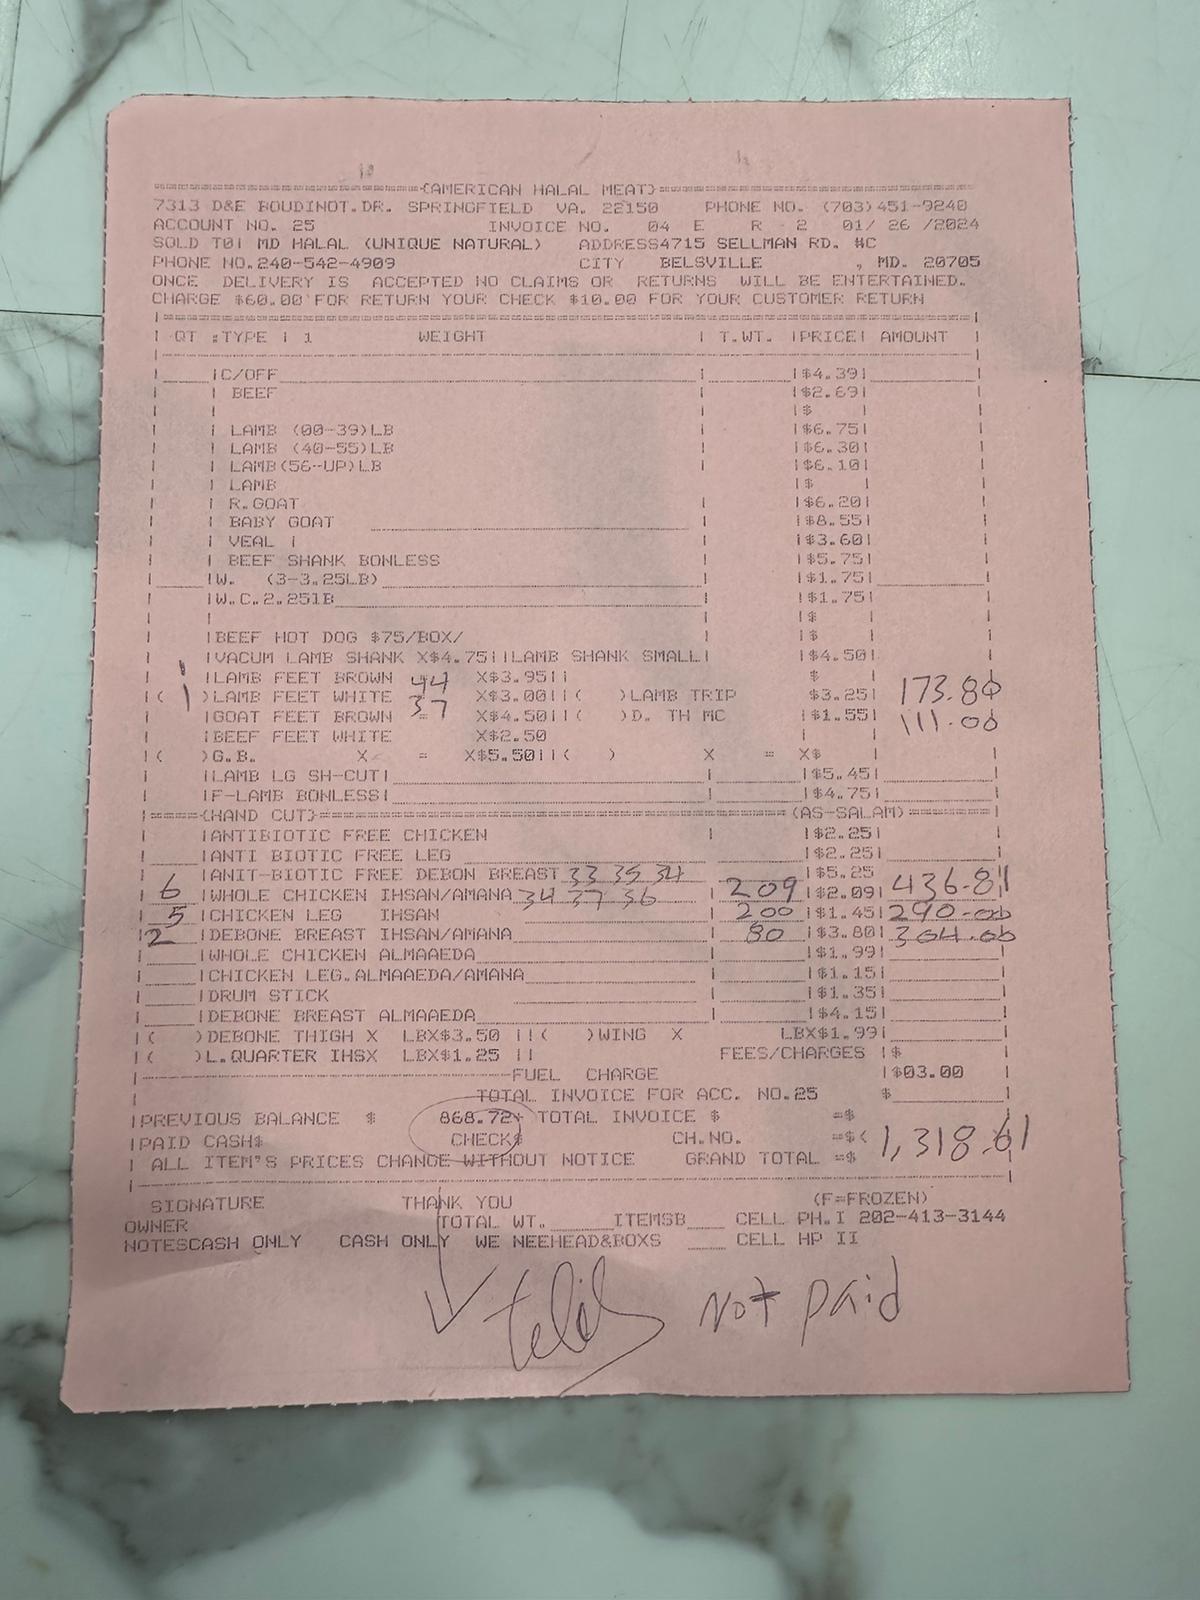 ==============================-{AMERICAN HALAL MEAT}===================================
7313 D&E BOUDINOT.DR. SPRINGFIELD VA. 22150 PHONE NO. (703)451-9240
ACCOUNT NO. 25 INVOICE NO. 04 E R 2 01/ 26 /2024
SOLD TO: MD HALAL (UNIQUE NATURAL) ADDRESS4715 SELLMAN RD. #C
PHONE NO.240-542-4909 CITY BELSVILLE , MD. 20705
ONCE DELIVERY IS ACCEPTED NO CLAIMS OR RETURNS WILL BE ENTERTAINED.
CHARGE $60.00 FOR RETURN YOUR CHECK $10.00 FOR YOUR CUSTOMER RETURN
QT :TYPE | 1 WEIGHT | T.WT. |PRICE| AMOUNT
|C/OFF |$4.39|
| BEEF |$2.69|
|$ |
| LAMB (00-39)LB |$6.75|
| LAMB (40-55)LB |$6.30|
| LAMB(56-UP)LB |$6.10|
| LAMB |$ |
| R.GOAT |$6.20|
| BABY GOAT |$8.55|
| VEAL | |$3.60|
| BEEF SHANK BONLESS |$5.75|
|W. (3-3.25LB) |$1.75|
|W.C.2.25lB |$1.75|
|$ |
|BEEF HOT DOG $75/BOX/ |$ |
|VACUM LAMB SHANK X$4.75||LAMB SHANK SMALL| |$4.50|
1 |LAMB FEET BROWN 44 X$3.95|| $ | 173.80
|( 1 )LAMB FEET WHITE 37 X$3.00||( )LAMB TRIP |$3.25| 111.00
|GOAT FEET BROWN = X$4.50||( )D. TH MC |$1.55|
|BEEF FEET WHITE X$2.50
|( )G.B. X = X$5.50||( ) X = X$
|LAMB LG SH-CUT| |$5.45|
|F-LAMB BONLESS| |$4.75|
|=====-{HAND CUT}==============================(AS-SALAM)=======
|ANTIBIOTIC FREE CHICKEN |$2.25|
|ANTI BIOTIC FREE LEG |$2.25|
|ANIT-BIOTIC FREE DEBON BREAST 33 35 34 |$5.25
6 |WHOLE CHICKEN IHSAN/AMANA 34 37 36 | 209 |$2.09| 436.81
5 |CHICKEN LEG IHSAN 200 |$1.45| 290.00
2 |DEBONE BREAST IHSAN/AMANA 80 |$3.80| 304.00
|WHOLE CHICKEN ALMAAEDA |$1.99|
|CHICKEN LEG.ALMAAEDA/AMANA |$1.15|
|DRUM STICK |$1.35|
|DEBONE BREAST ALMAAEDA |$4.15|
|( )DEBONE THIGH X LBX$3.50 ||( )WING X LBX$1.99|
|( )L.QUARTER IHSX LBX$1.25 || FEES/CHARGES |$
FUEL CHARGE |$03.00
TOTAL INVOICE FOR ACC. NO.25 $
|PREVIOUS BALANCE $ 868.72+ TOTAL INVOICE $ =$
|PAID CASH$ CHECK$ CH.NO. =$<
| ALL ITEM'S PRICES CHANGE WITHOUT NOTICE GRAND TOTAL =$ 1,318.61
SIGNATURE THANK YOU (F=FROZEN)
OWNER TOTAL WT.______ITEMSB____ CELL PH.I 202-413-3144
NOTESCASH ONLY CASH ONLY WE NEEHEAD&BOXS ____ CELL HP II
Not paid